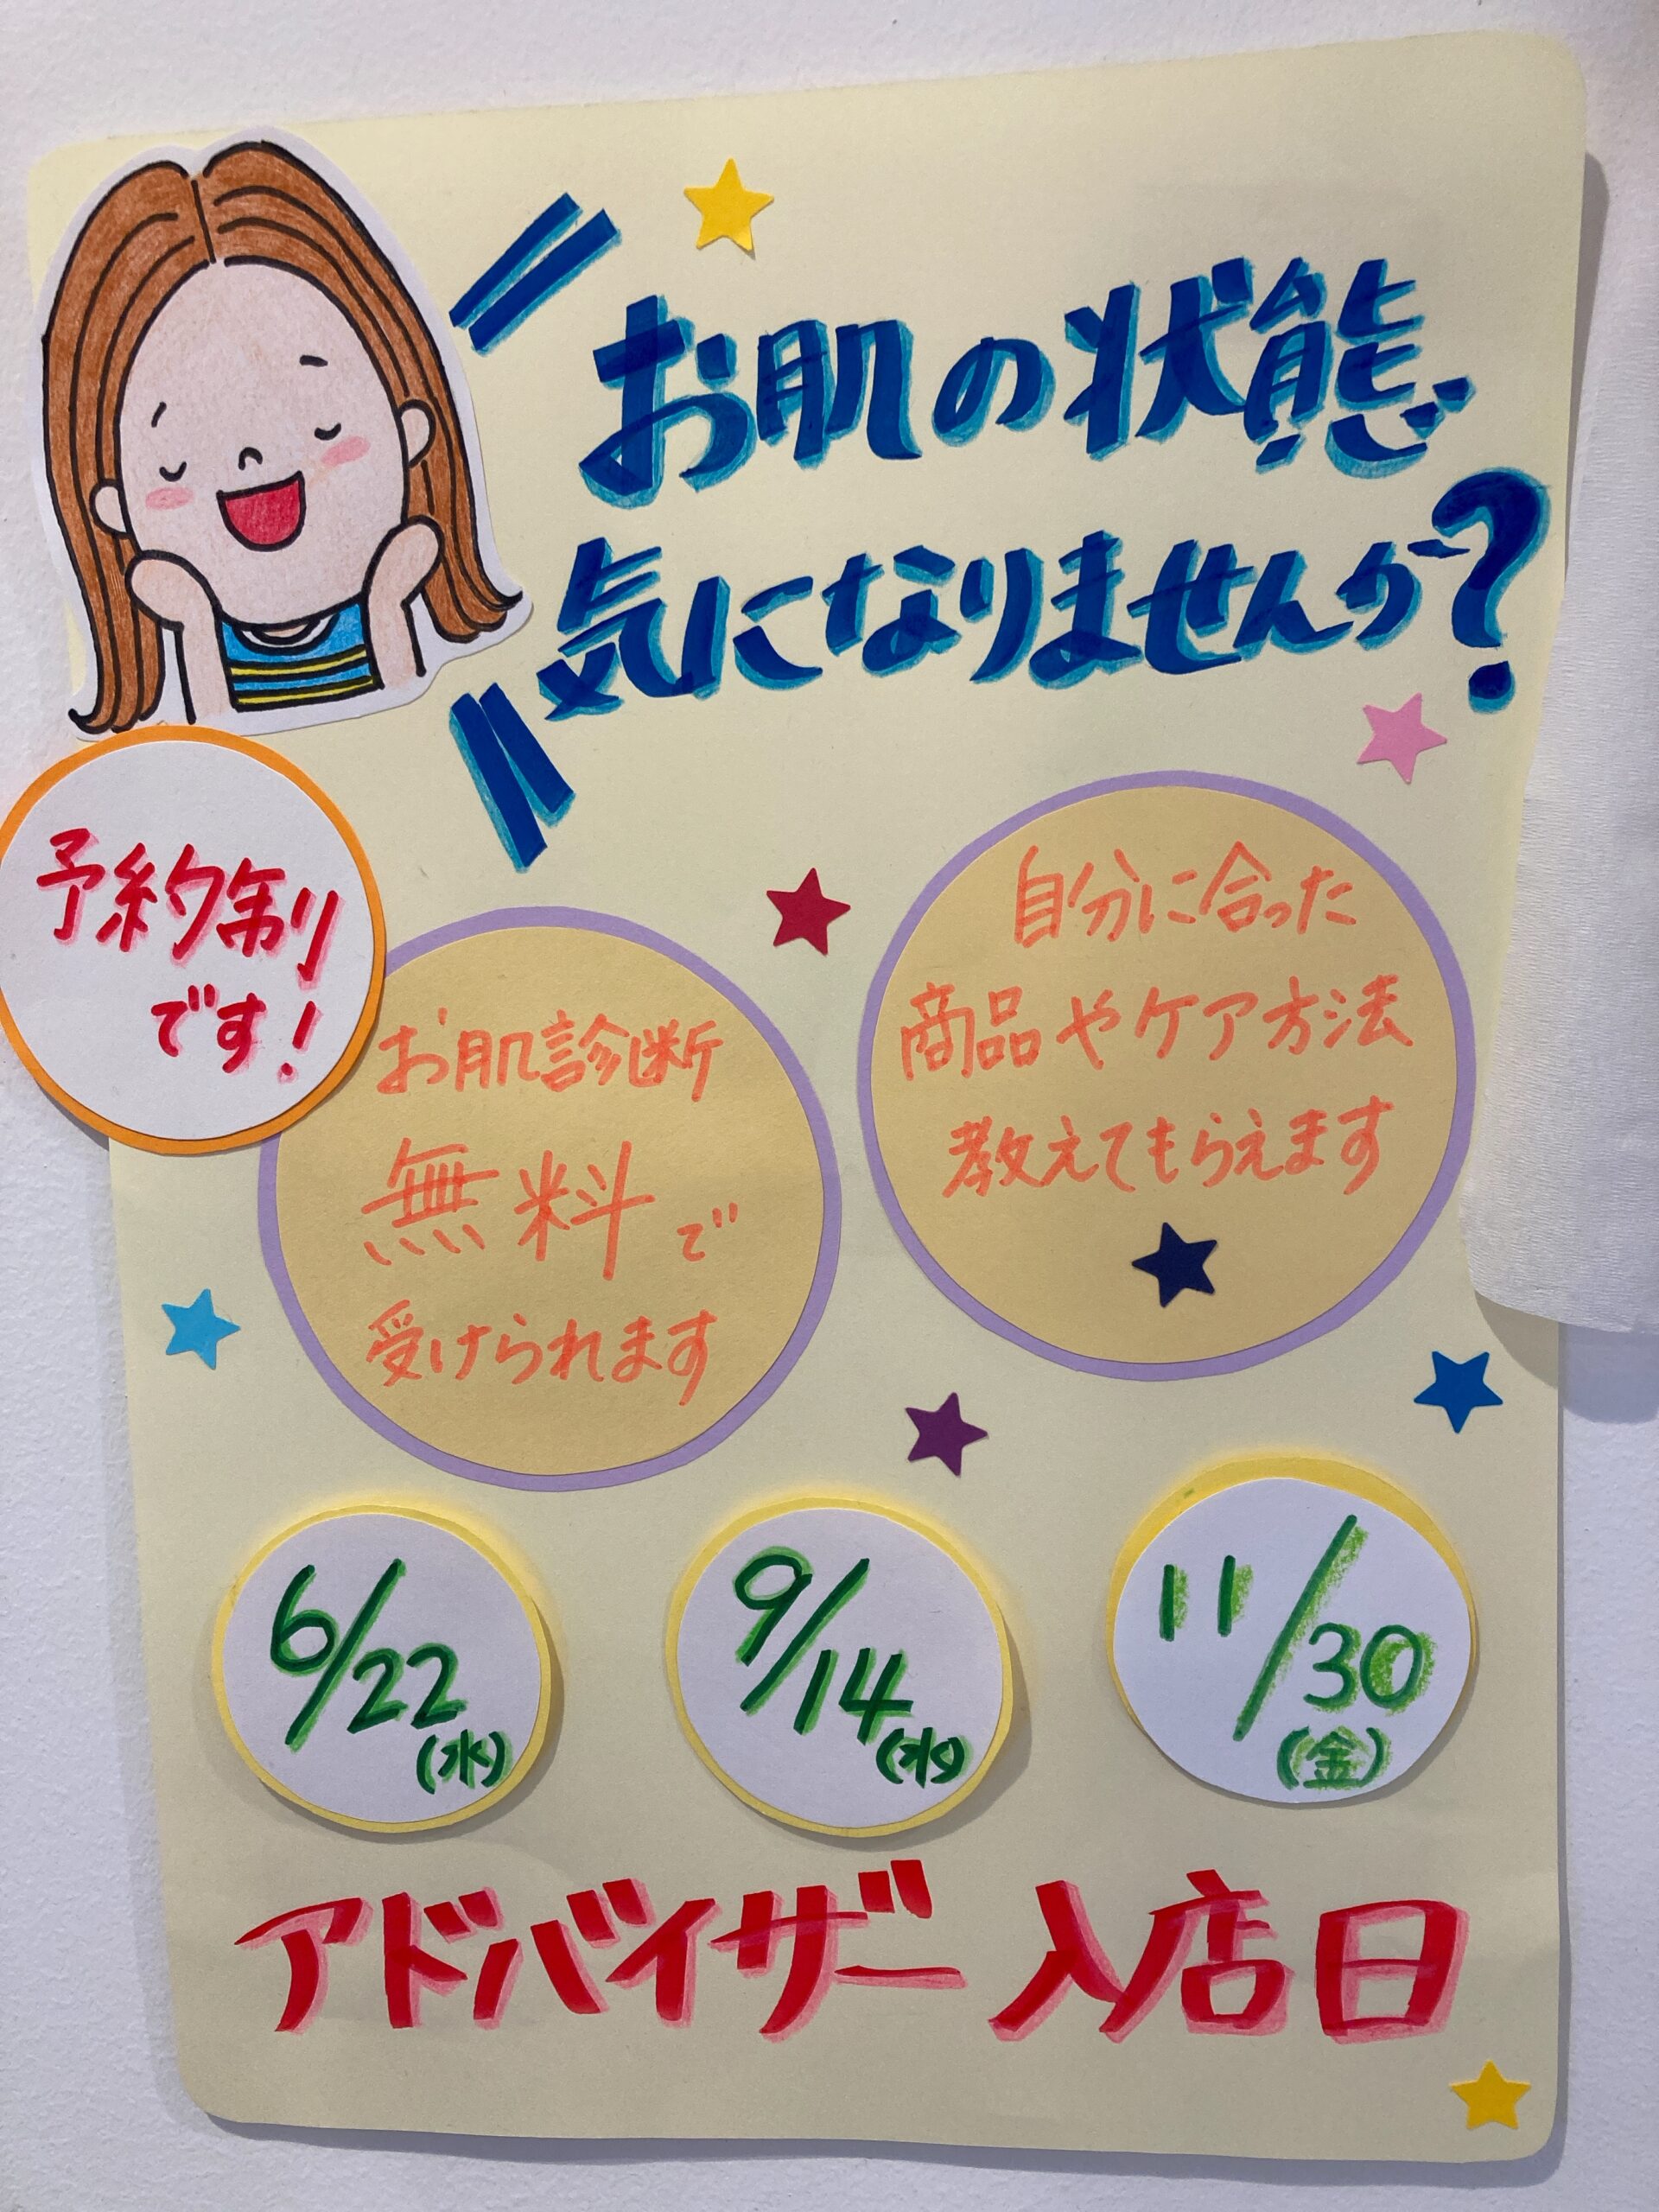 お肌の状態
気になりませんか?
予約制
です!
お肌診断
無料で
受けられます
自分に合った
商品やケア方法
教えてもらえます
6/22
(水)
9/14
(水)
11/30
(金)
アドバイザー入店日